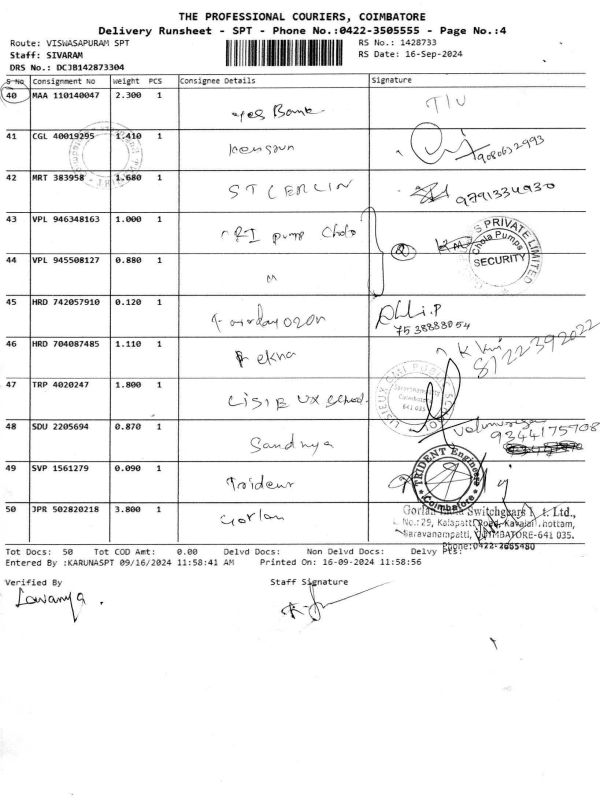 THE PROFESSIONAL COURIERS, COIMBATORE
Delivery Runsheet - SPT - Phone No.:0422-3505555 - Page No.:4
Route: VISWASAPURAM SPT
RS No.: 1428733
Staff: SIVARAM
RS Date: 16-Sep-2024
DRS No.: DCJB142873304
S No Consignment No Weight PCS Consignee Details Signature
40 MAA 110140047 2.300 1 yes Bank
41 CGL 40019295 1.410 1 9080632993
42 MRT 383958 1.680 1 9791334930
43 VPL 946348163 1.000 1 pump Chola
S PRIVATE LIMITED
Chola Pumps
SECURITY
44 VPL 945508127 0.880 1
45 HRD 742057910 0.120 1 7538888054
46 HRD 704087485 1.110 1 ekna 8122392022
47 TRP 4020247 1.800 1 LISIEUX School
Coimbatore
641 035
48 SDU 2205694 0.870 1 Sandhya 9344175708
49 SVP 1561279 0.090 1 Trident
TRIDENT Engineers
Coimbatore
50 JPR 502820218 3.800 1 Gorlan
Switchgears
No.:29, Kalapatti Road,
Saravanampatti, COIMBATORE-641 035.
Phone:0422-2665480
Tot Docs: 50 Tot COD Amt: 0.00 Delvd Docs: Non Delvd Docs: Delvy Pts:
Entered By :KARUNASPT 09/16/2024 11:58:41 AM Printed On: 16-09-2024 11:58:56
Verified By Staff Signature
Lavanya.